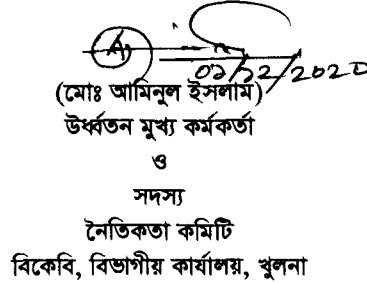 02/12/2020
(মোঃ আমিনুল ইসলাম)
উর্ধ্বতন মুখ্য কর্মকর্তা
ও
সদস্য
নৈতিকতা কমিটি
বিকেবি, বিভাগীয় কার্যালয়, খুলনা